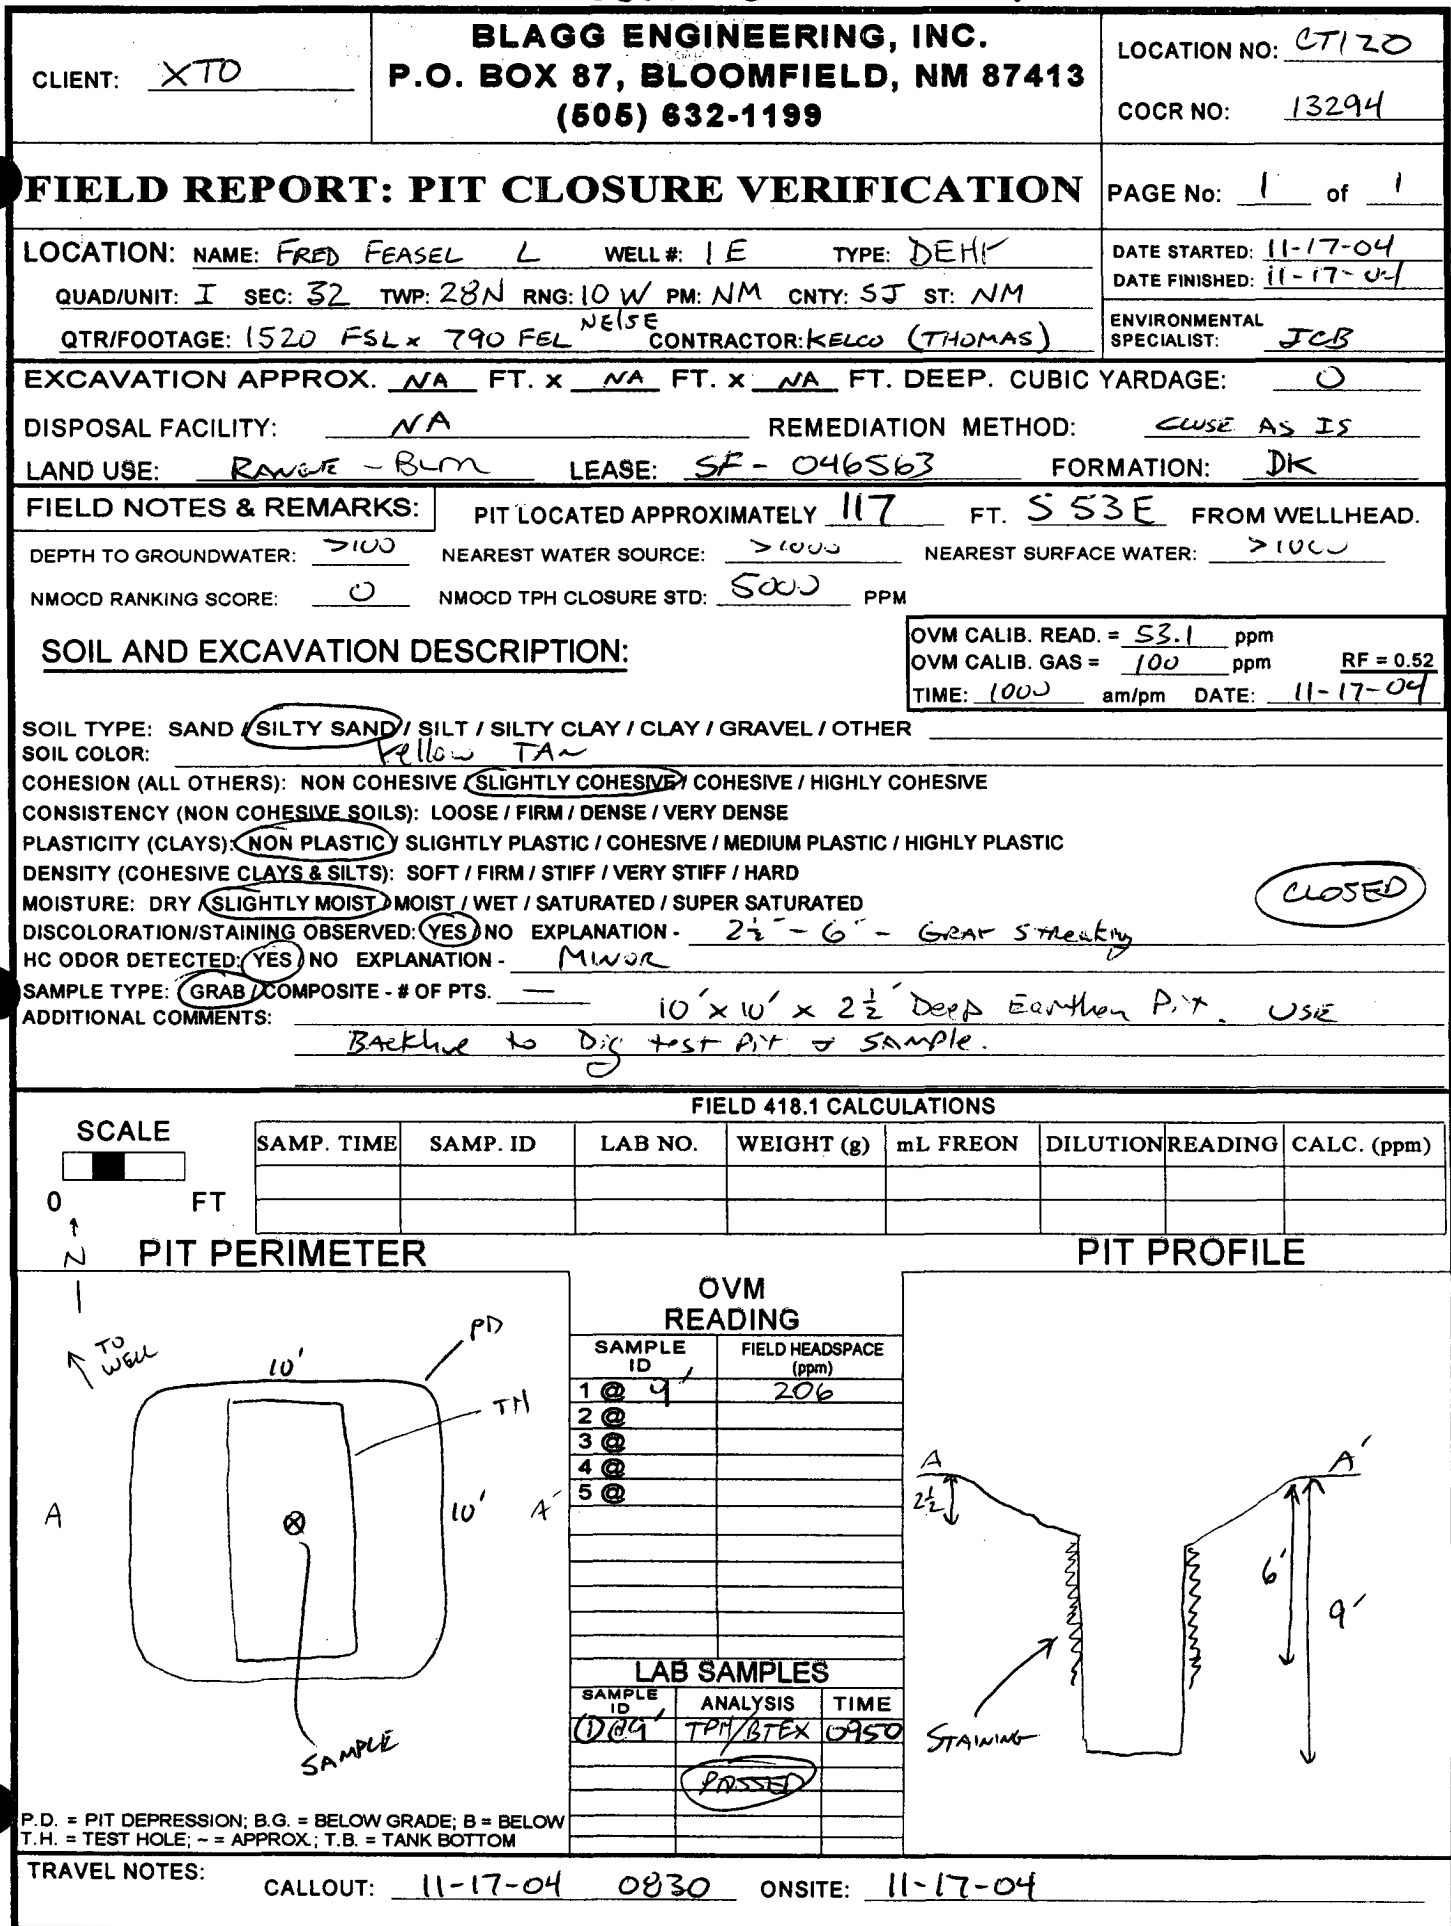 BLAGG ENGINEERING, INC.
P.O. BOX 87, BLOOMFIELD, NM 87413
(505) 632-1199
CLIENT: XTO
LOCATION NO: CT120
COCR NO: 13294
FIELD REPORT: PIT CLOSURE VERIFICATION
PAGE No: 1 of 1
LOCATION: NAME: FRED FEASEL L WELL #: 1E TYPE: DEHY
DATE STARTED: 11-17-04
DATE FINISHED: 11-17-04
QUAD/UNIT: I SEC: 32 TWP: 28N RNG: 10W PM: NM CNTY: SJ ST: NM
QTR/FOOTAGE: 1520 FSL x 790 FEL NE/SE CONTRACTOR: KELCO (THOMAS)
ENVIRONMENTAL
SPECIALIST: JCB
EXCAVATION APPROX. NA FT. x NA FT. x NA FT. DEEP. CUBIC YARDAGE: 0
DISPOSAL FACILITY: NA REMEDIATION METHOD: CLOSE AS IS
LAND USE: RANGE - BLM LEASE: SF- 046563 FORMATION: DK
FIELD NOTES & REMARKS: PIT LOCATED APPROXIMATELY 117 FT. S 53E FROM WELLHEAD.
DEPTH TO GROUNDWATER: >100 NEAREST WATER SOURCE: >1000 NEAREST SURFACE WATER: >1000
NMOCD RANKING SCORE: 0 NMOCD TPH CLOSURE STD: 5000 PPM
SOIL AND EXCAVATION DESCRIPTION:
OVM CALIB. READ. = 53.1 ppm
OVM CALIB. GAS = 100 ppm RF = 0.52
TIME: 1000 am/pm DATE: 11-17-04
SOIL TYPE: SAND / SILTY SAND / SILT / SILTY CLAY / CLAY / GRAVEL / OTHER
SOIL COLOR: Yellow TAN
COHESION (ALL OTHERS): NON COHESIVE / SLIGHTLY COHESIVE / COHESIVE / HIGHLY COHESIVE
CONSISTENCY (NON COHESIVE SOILS): LOOSE / FIRM / DENSE / VERY DENSE
PLASTICITY (CLAYS): NON PLASTIC / SLIGHTLY PLASTIC / COHESIVE / MEDIUM PLASTIC / HIGHLY PLASTIC
DENSITY (COHESIVE CLAYS & SILTS): SOFT / FIRM / STIFF / VERY STIFF / HARD
MOISTURE: DRY / SLIGHTLY MOIST / MOIST / WET / SATURATED / SUPER SATURATED
CLOSED
DISCOLORATION/STAINING OBSERVED: YES / NO EXPLANATION - 2½' - 6' - GRAY Streaking
HC ODOR DETECTED: YES / NO EXPLANATION - MINOR
SAMPLE TYPE: GRAB / COMPOSITE - # OF PTS. —
ADDITIONAL COMMENTS: 10' x 10' x 2½' Deep Earthen Pit. USE
Backhoe to Dig test Pit & SAMPLE.
FIELD 418.1 CALCULATIONS
SCALE
0 FT
SAMP. TIME SAMP. ID LAB NO. WEIGHT (g) mL FREON DILUTION READING CALC. (ppm)
N
PIT PERIMETER
TO WELL
10'
PD
TH
A
10'
A'
SAMPLE
P.D. = PIT DEPRESSION; B.G. = BELOW GRADE; B = BELOW
T.H. = TEST HOLE; ~ = APPROX.; T.B. = TANK BOTTOM
OVM
READING
SAMPLE ID FIELD HEADSPACE (ppm)
1 @ 9' 206
2 @
3 @
4 @
5 @
LAB SAMPLES
SAMPLE ID ANALYSIS TIME
①@9' TPH/BTEX 0950
PASSED
PIT PROFILE
A
A'
2½
6'
9'
STAINING
TRAVEL NOTES: CALLOUT: 11-17-04 0830 ONSITE: 11-17-04